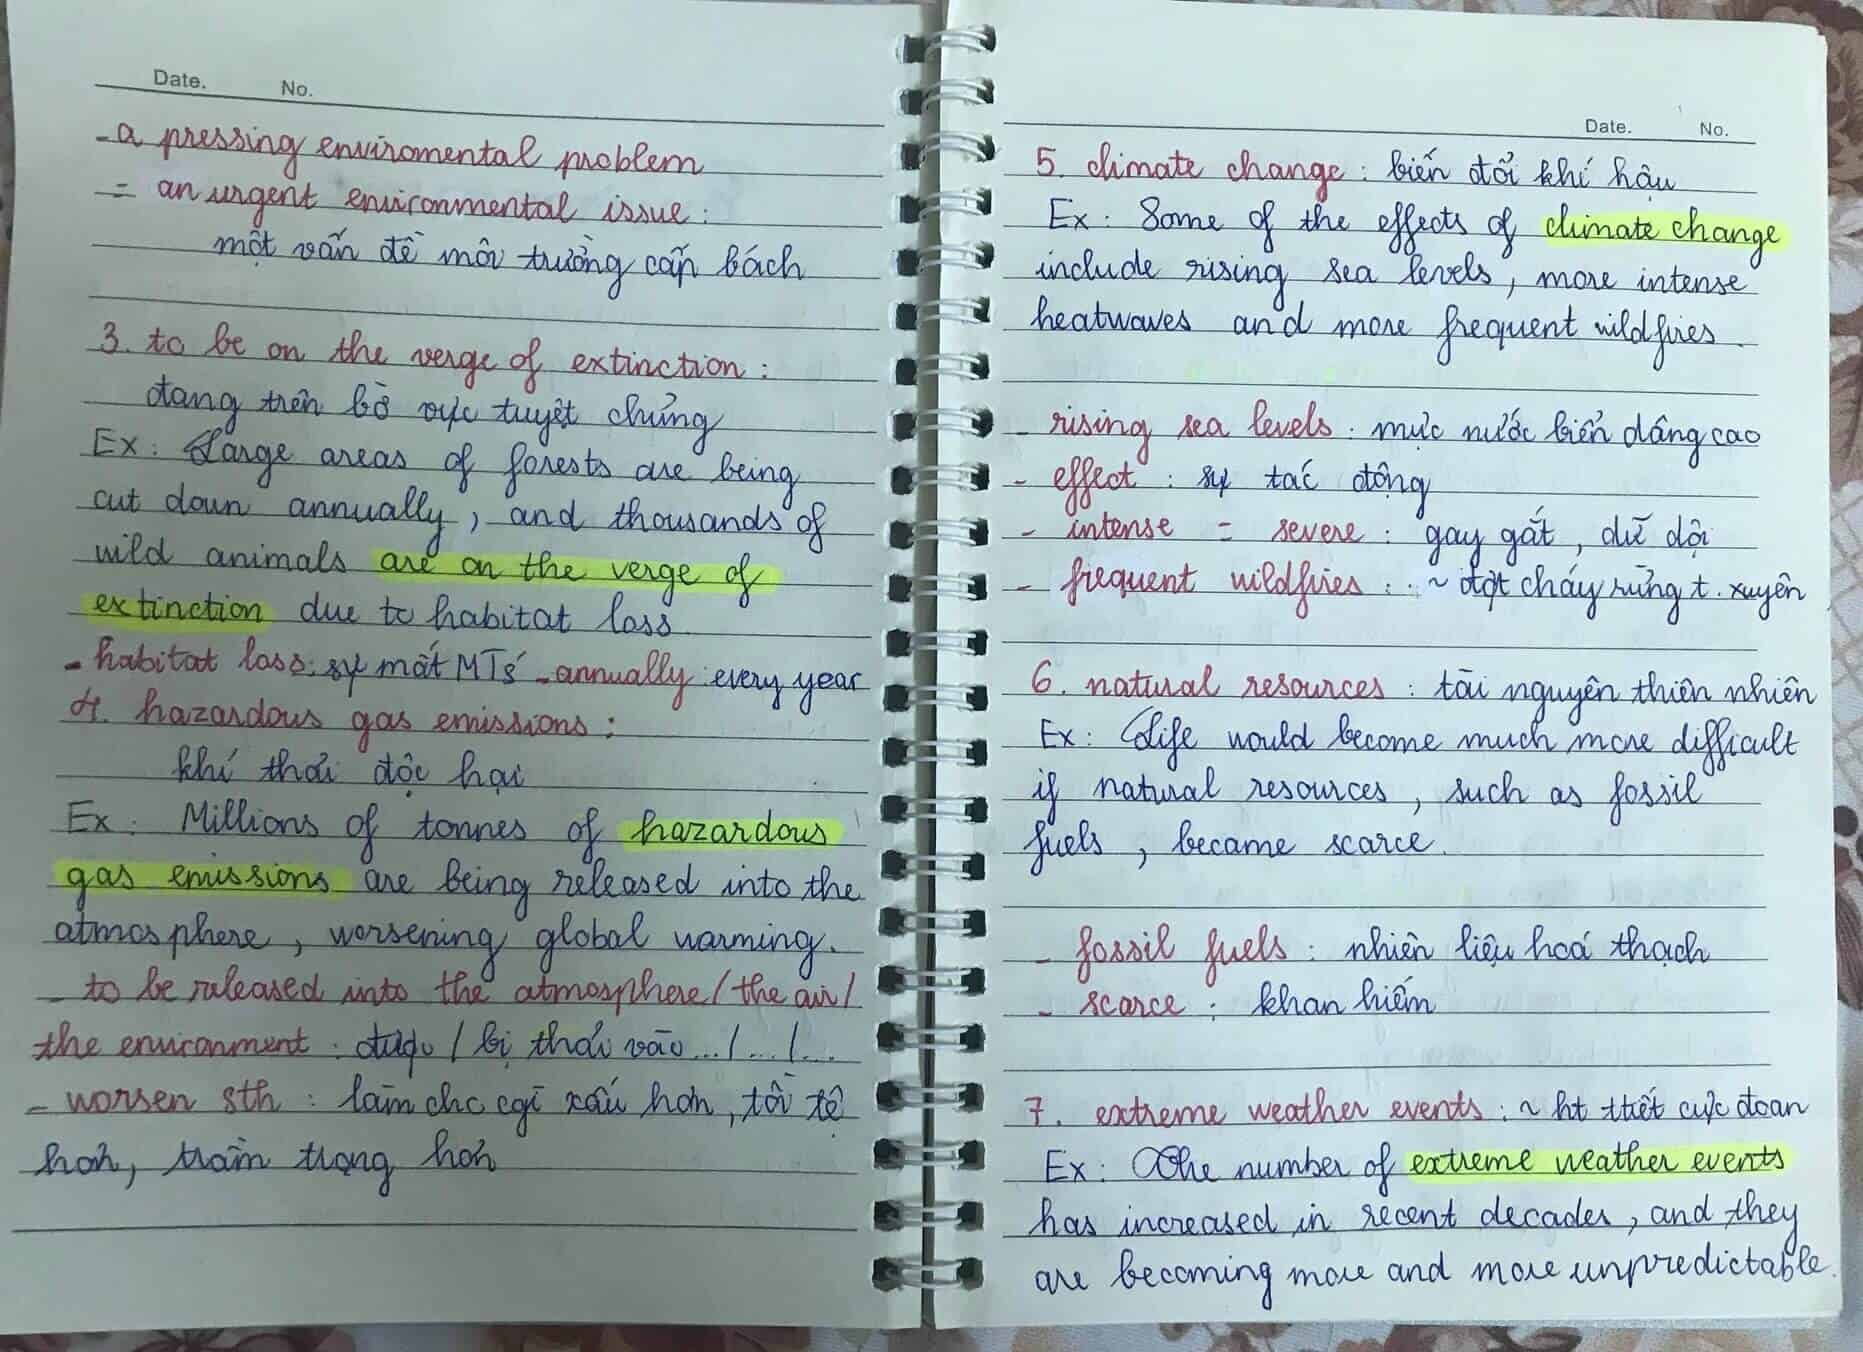 Date. No.
- a pressing enviromental problem
= an urgent environmental issue :
một vấn đề môi trường cấp bách
3. to be on the verge of extinction :
đang trên bờ vực tuyệt chủng
Ex : Large areas of forests are being
cut down annually, and thousands of
wild animals are on the verge of
extinction due to habitat loss
- habitat loss : sự mất MTS - annually : every year
4. hazardous gas emissions :
khí thải độc hại
Ex : Millions of tonnes of hazardous
gas emissions are being released into the
atmosphere, worsening global warming.
- to be released into the atmosphere / the air /
the environment : được / bị thải vào ... / ... / ...
- worsen sth : làm cho cgì xấu hơn, tồi tệ
hơn, trầm trọng hơn
Date. No.
5. climate change : biến đổi khí hậu
Ex : Some of the effects of climate change
include rising sea levels, more intense
heatwaves and more frequent wildfires.
- rising sea levels : mực nước biển dâng cao
- effect : sự tác động
- intense = severe : gay gắt, dữ dội
- frequent wildfires : ~ đợt cháy rừng t. xuyên
6. natural resources : tài nguyên thiên nhiên
Ex : Life would become much more difficult
if natural resources, such as fossil
fuels, became scarce.
- fossil fuels : nhiên liệu hoá thạch
- scarce : khan hiếm
7. extreme weather events : ~ ht ttiết cực đoan
Ex : The number of extreme weather events
has increased in recent decades, and they
are becoming more and more unpredictable.